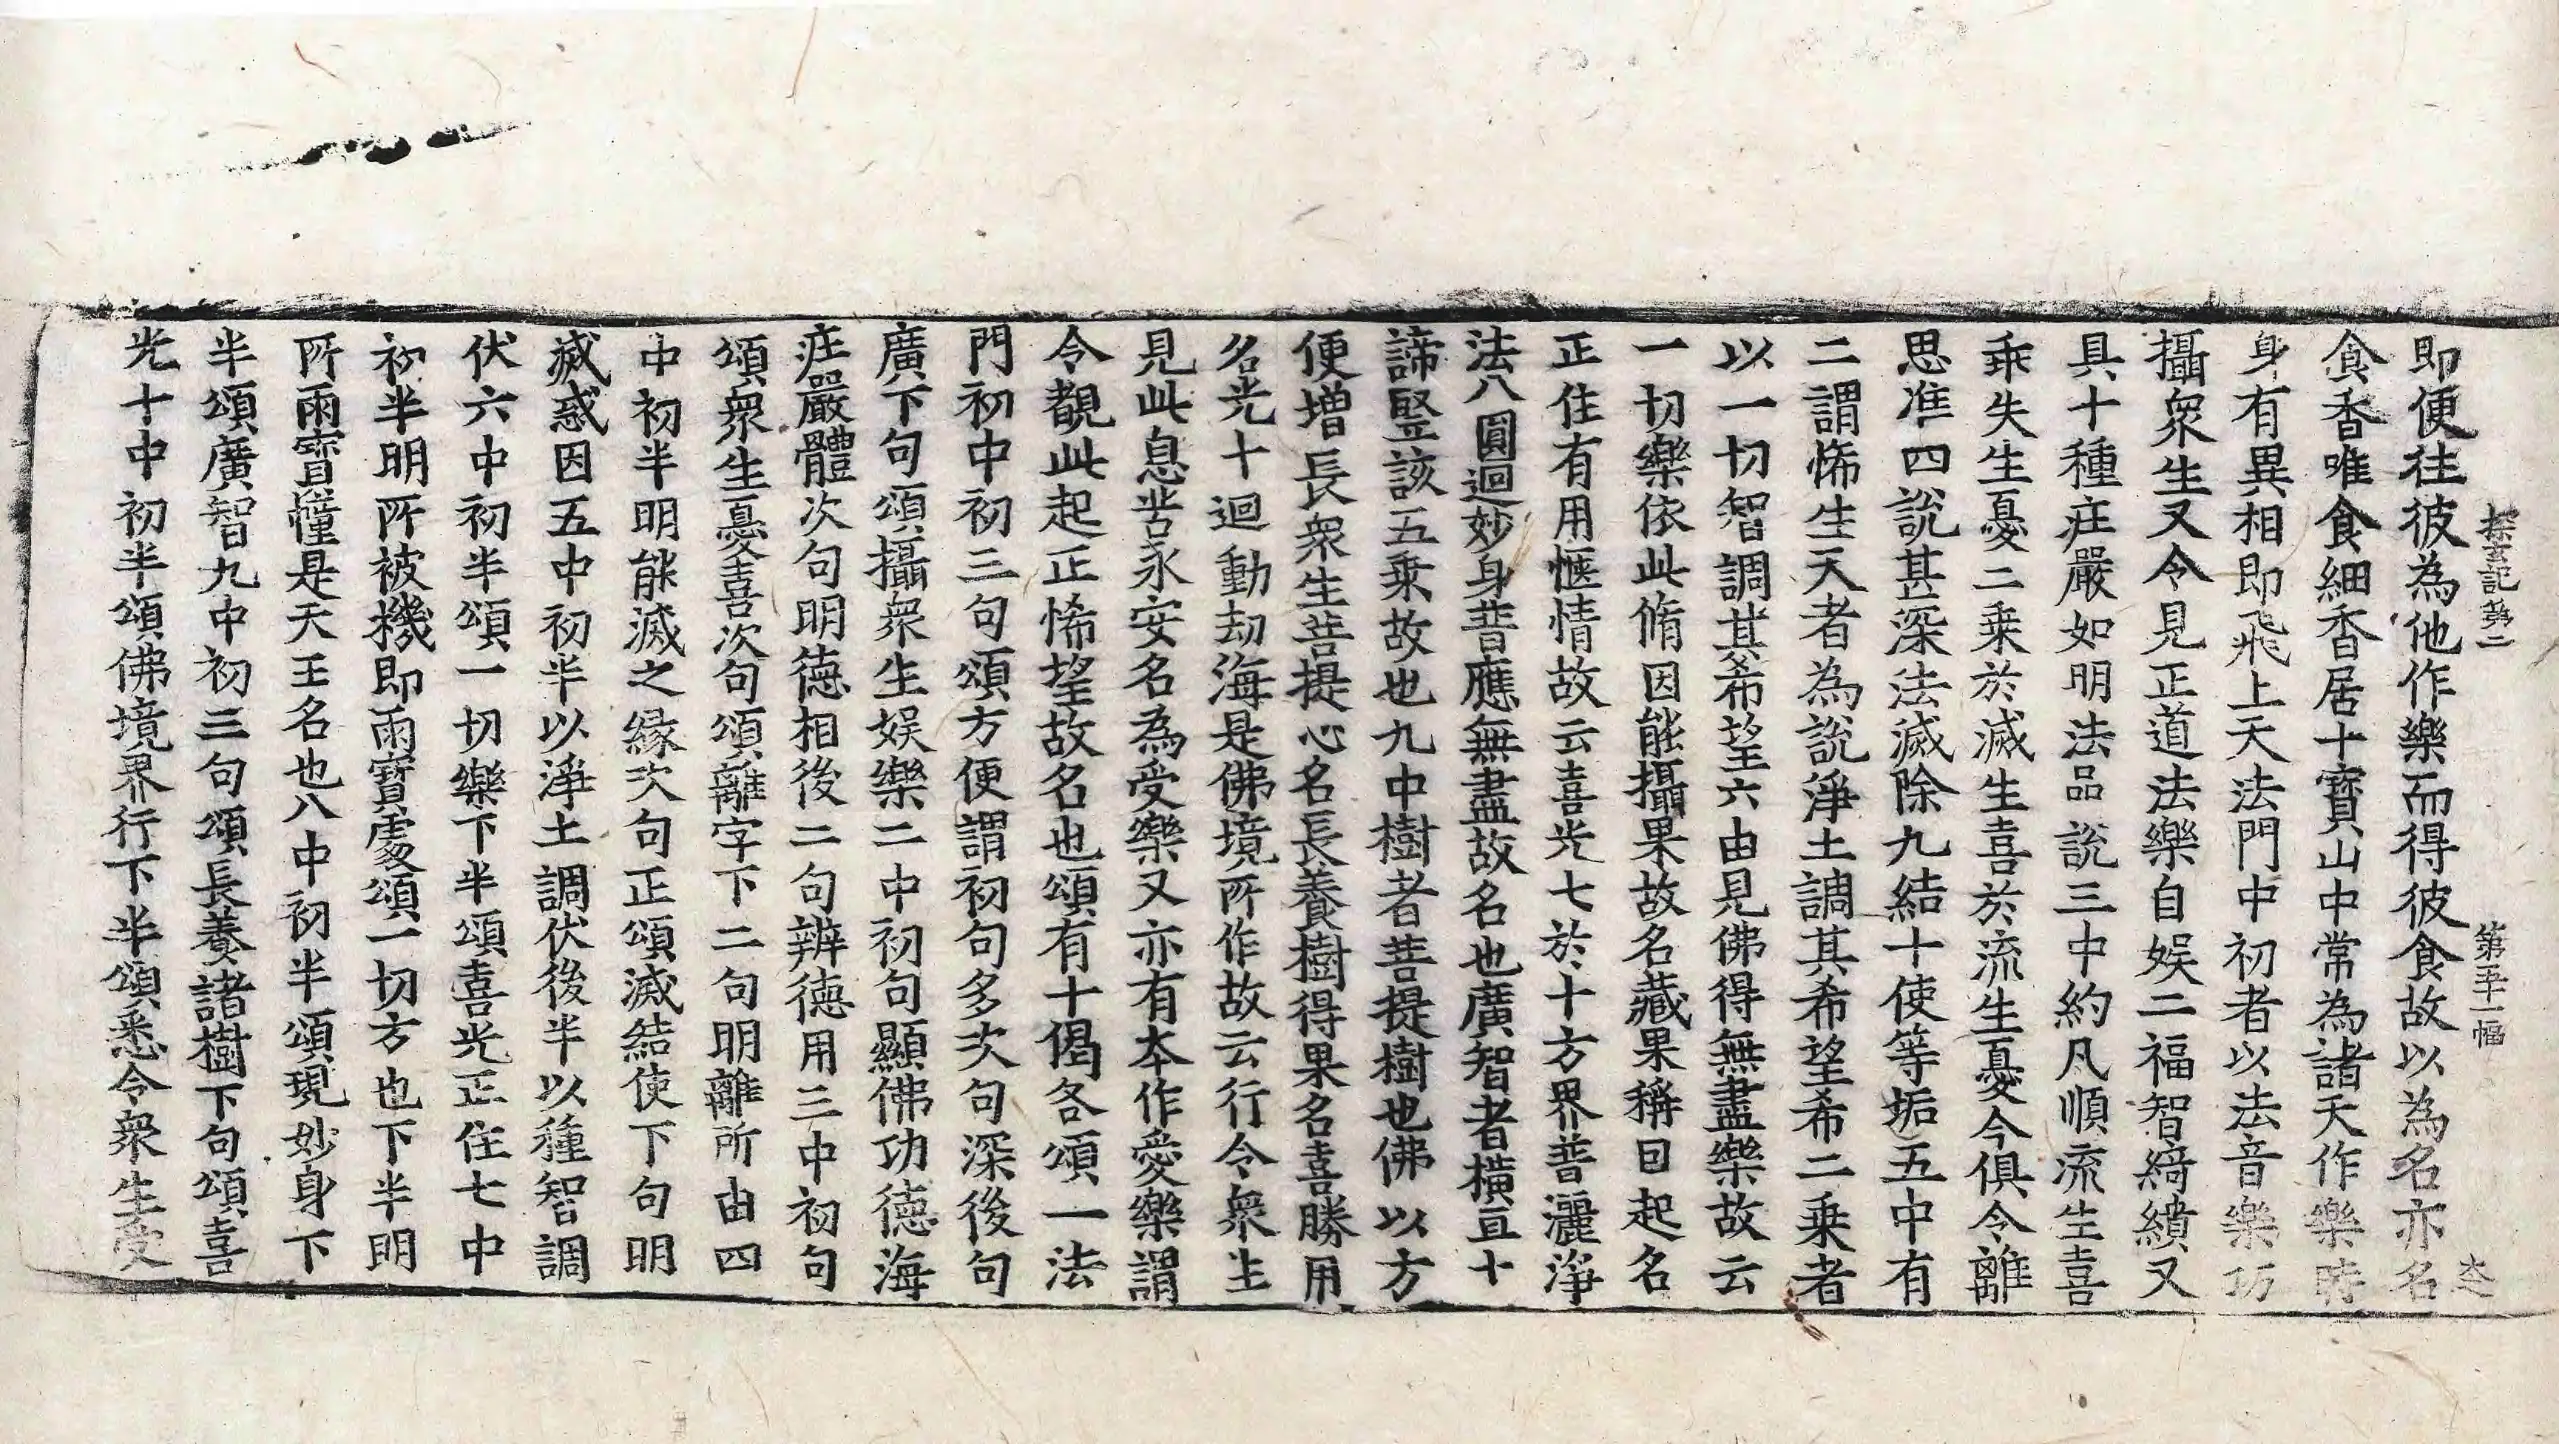 探玄記第二　第五十一幅
即便往彼為他作樂而得彼食故以為名亦名
食香唯食細香居十寶山中常為諸天作樂時
身有異相即飛上天法門中初者以法音樂巧
攝衆生又令見正道法樂自娱二福智綺繢又
具十種庄嚴如明法品說三中約凡順流生喜
乖失生憂二乗於滅生喜於流生憂今俱令離
思准四說甚深法滅除九結十使等垢五中有
二謂悕生天者為說淨土調其希望希二乗者
以一切智調其希望六由見佛得無盡樂故云
一切樂依此脩因能攝果故名藏果稱目起名
正住有用愜情故云喜光七於十方界普灑淨
法八圓迴妙身普應無盡故名也廣智者橫亘十
諦竪該五乗故也九中樹者菩提樹也佛以方
便增長衆生菩提心名長養樹得果名喜勝用
名光十迴動劫海是佛境所作故云行令衆生
見此息苦永安名為受樂又亦有本作愛樂謂
令覩此起正悕望故名也頌有十偈各頌一法
門初中初三句頌方便謂初句多次句深後句
廣下句頌攝衆生娱樂二中初句顯佛功德海
庄嚴體次句明德相後二句辨德用三中初句
頌衆生憂喜次句頌離字下二句明離所由四
中初半明能滅之緣次句正頌滅結使下句明
滅惑因五中初半以淨土調伏後半以種智調
伏六中初半頌一切樂下半頌喜光正住七中
初半明所被機即雨寶處頌一切方也下半明
所雨寳幢是天王名也八中初半頌現妙身下
半頌廣智九中初三句頌長養諸樹下句頌喜
光十中初半頌佛境界行下半頌悉令衆生受